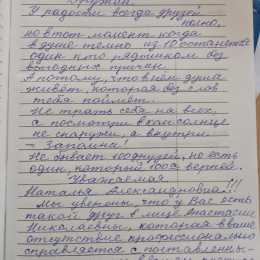 У радости всегда друзей
полно,
но в тот момент, когда
в душе темно из 10 останется
один кто рядышком без
выгодных причин.
А потому, что в нём душа
живёт, которая без слов
тебя поймёт.
Не трать себя на всех,
а посмотри в как солнце
не снаружи, а внутри
- Запомни!
Не бывает 100 друзей, но есть
один, который 100% верней.
Уважаемая
Наталья Александровна!!!
Мы уверены, что у Вас есть
такой друг в лице Анастасии
Николаевны, которая в ваше
отсутствие профессионально
справляется с поставленны-